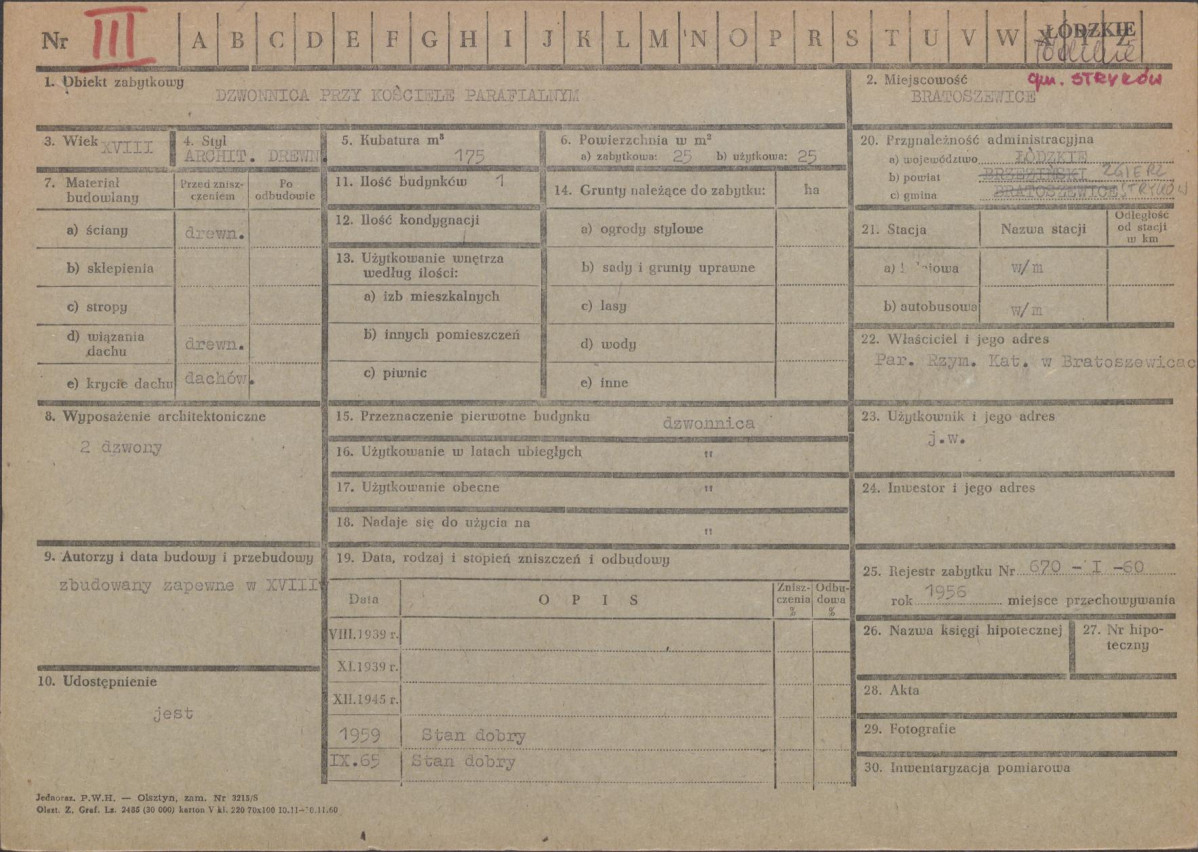 Nr III A B C D E F G H I J K L M N O P R S T U V W
ŁÓDZKIE
gm. STRYKÓW
1. Obiekt zabytkowy
DZWONNICA PRZY KOŚCIELE PARAFIALNYM
2. Miejscowość
BRATOSZEWICE
3. Wiek XVIII
4. Styl
ARCHIT. DREWN.
5. Kubatura m³
175
6. Powierzchnia w m²
a) zabytkowa: 25 b) użytkowa: 25
7. Materiał budowlany
Przed znisz-
czeniem
Po
odbudowie
a) ściany drewn.
b) sklepienia
c) stropy
d) wiązania
dachu drewn.
e) krycie dachu dachów.
11. Ilość budynków 1
12. Ilość kondygnacji
1
13. Użytkowanie wnętrza
według ilości:
a) izb mieszkalnych
b) innych pomieszczeń
c) piwnic
14. Grunty należące do zabytku: ha
a) ogrody stylowe
b) sady i grunty uprawne
c) lasy
d) wody
e) inne
20. Przynależność administracyjna
a) województwo ŁÓDZKIE
b) powiat BRZEZIŃSKI ZGIERZ
c) gmina BRATOSZEWICE STRYKÓW
21. Stacja
Nazwa stacji
Odległość
od stacji
w km
a) w/m
b) autobusowa w/m
22. Właściciel i jego adres
Par. Rzym. Kat. w Bratoszewicac
8. Wyposażenie architektoniczne
2 dzwony
15. Przeznaczenie pierwotne budynku dzwonnica
16. Użytkowanie w latach ubiegłych "
17. Użytkowanie obecne "
18. Nadaje się do użycia na "
23. Użytkownik i jego adres
j.w.
24. Inwestor i jego adres
9. Autorzy i data budowy i przebudowy
zbudowany zapewne w XVIII
19. Data, rodzaj i stopień zniszczeń i odbudowy
Data
O P I S
Znisz-
czenia
%
Odbu-
dowa
%
VIII.1939 r.
XI.1939 r.
XII.1945 r.
1959 Stan dobry
IX.65 Stan dobry
10. Udostępnienie
jest
25. Rejestr zabytku Nr 670 - I - 60
rok 1956 miejsce przechowywania
26. Nazwa księgi hipotecznej
27. Nr hipo-
teczny
28. Akta
29. Fotografie
30. Inwentaryzacja pomiarowa
Jednoraz. P.W.H. — Olsztyn, zam. Nr 3215/5
Olszt. Z. Graf. Lz. 2485 (30 000) karton V kl. 220 70x100